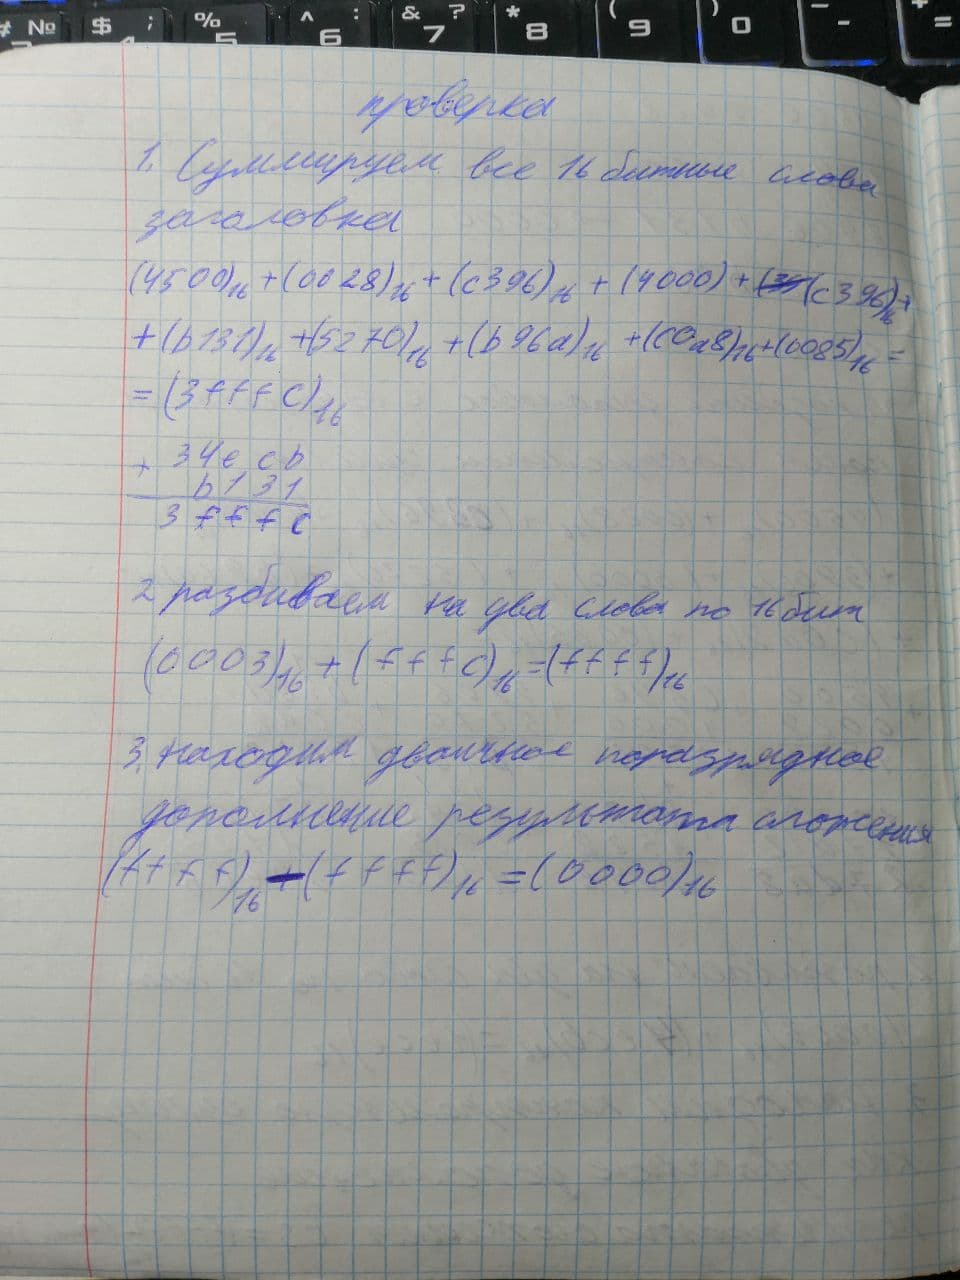 # № $ ; 4 % 5 ^ : 6 & ? 7 * 8 ( 9 ) 0 - - + =
проверка
1. Суммируем все 16 битные слова
заголовка
(4500)16 + (0028)16 + (c396)16 + (4000) + (c396)16 +
+ (b131)16 + (5270)16 + (b96a)16 + (c0a8)16 + (0085)16 =
= (3fffc)16
+ 34e,cb
b131
3fffc
2 разбиваем на два слова по 16 бит
(0003)16 + (fffc)16 = (ffff)16
3. Находим двоичное поразрядное
дополнение результата сложения
(ffff)16 - (ffff)16 = (0000)16